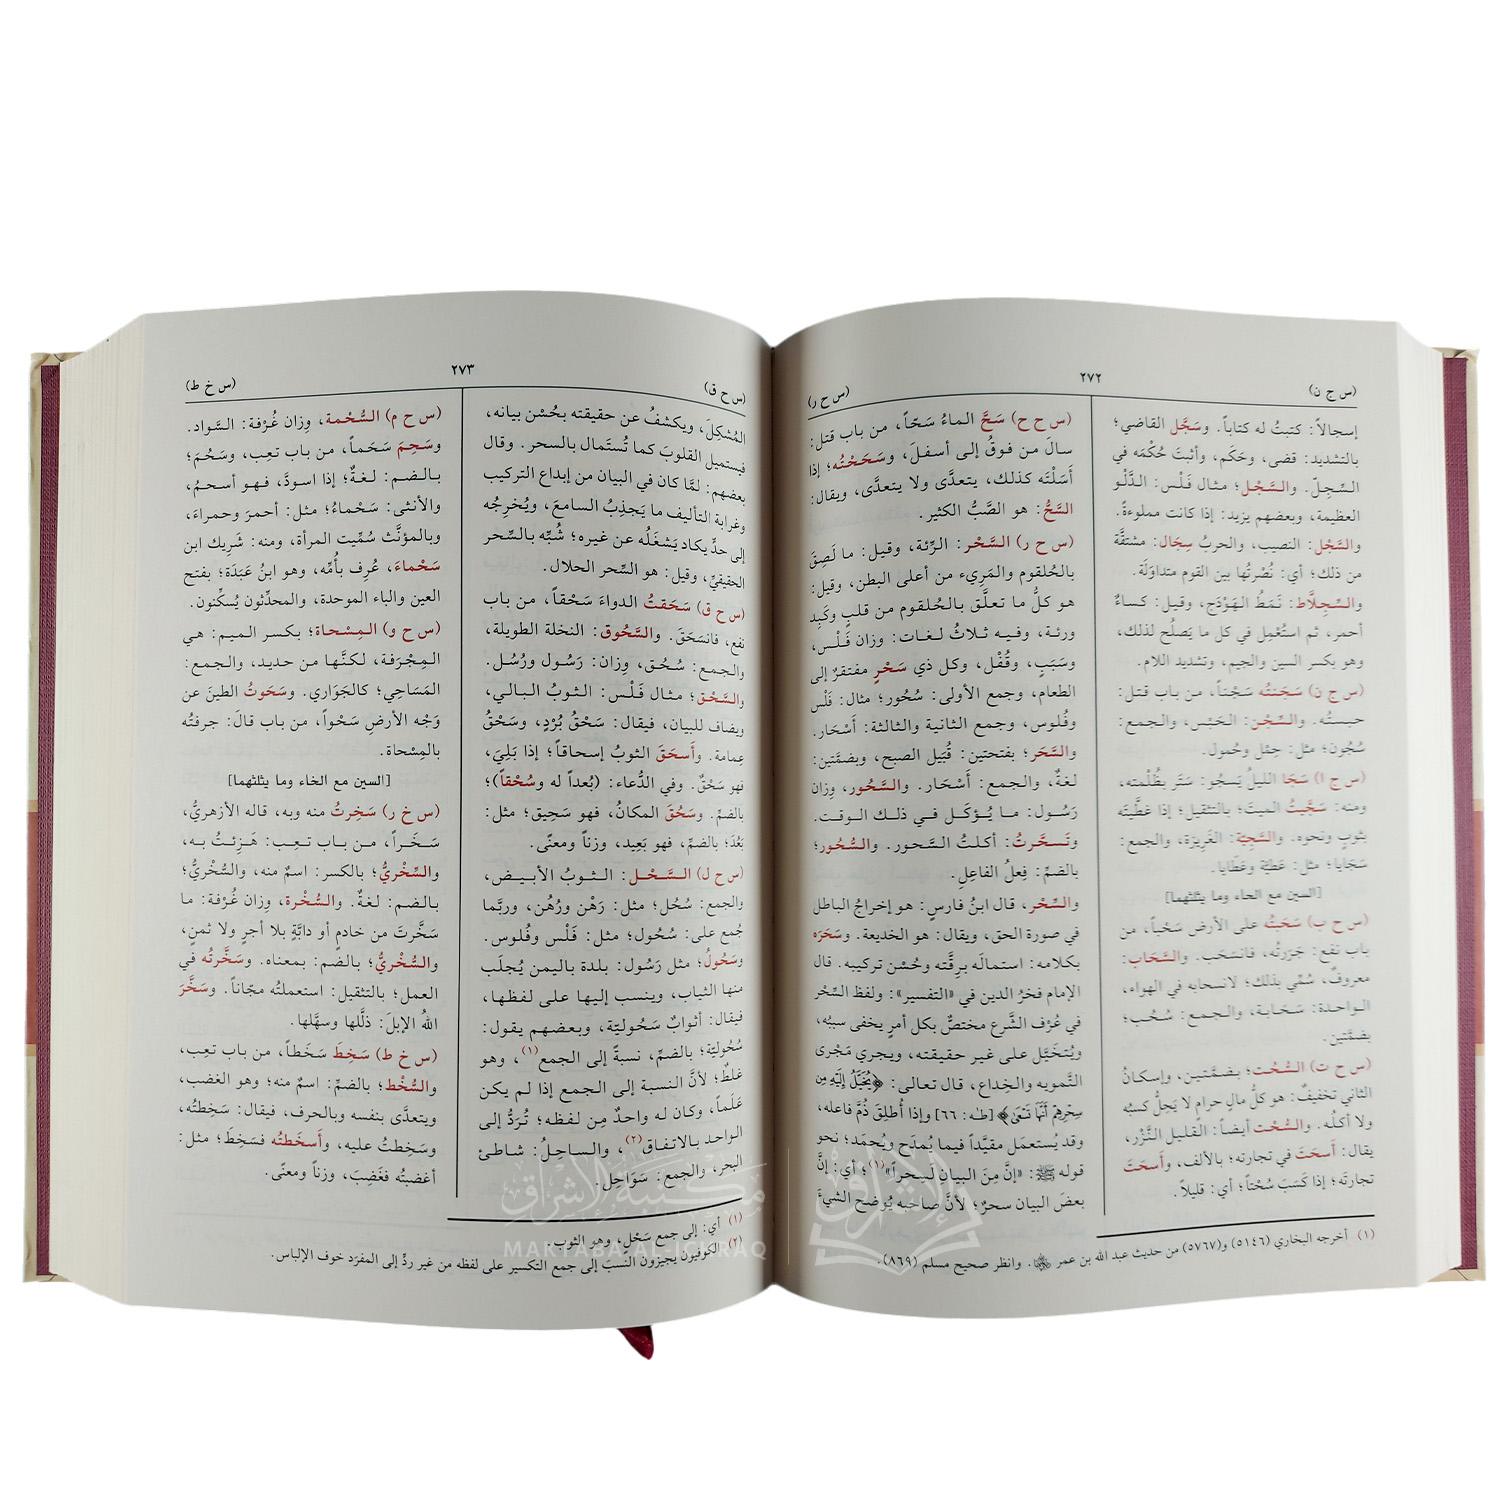 (س ج ن)
٢٧٢
(س ح ر)
إسجالاً: كتبتُ له كتاباً. وسَجَّل القاضي؛
بالتشديد: قضى، وحَكَم، وأثبتَ حُكمَه في
السِّجِلّ. والسَّجْل؛ مثال فَلْس: الدَّلْو
العظيمة، وبعضهم يزيد: إذا كانت مملوءةً.
والسَّجْل: النصيب، والحربُ سِجَال: مشتقَّة
من ذلك؛ أي: نُصْرتُها بين القوم متداوَلَة.
والسِّجِلاَّط: نَمَطُ الهَوْدَج، وقيل: كساءٌ
أحمر، ثم استُعْمِل في كل ما يَصلُح لذلك،
وهو بكسر السين والجيم، وتشديد اللام.
(س ج ن) سَجَنتُه سَجْناً، من باب قتل:
حبستُه. والسِّجْن: الحَبْس، والجمع:
سُجُون؛ مثل: حِمْل وحُمول.
(س ج ا) سَجَا الليلُ يَسجُو: سَتَر بِظُلْمته،
ومنه: سَجَّيتُ الميتَ؛ بالتثقيل؛ إذا غطَّيتَه
بثوبٍ ونحوه. والسَّجِيَّة: الغَرِيزَة، والجمع:
سَجَايا؛ مثل: عَطِيَّة وعَطَايا.
[السين مع الحاء وما يثلثهما]
(س ح ب) سَحَبتُه على الأرض سَحْباً، من
باب نفع: جَرَرتُه، فانسَحَب. والسَّحَاب:
معروفٌ، سُمِّي بذلك؛ لانسحابه في الهواء،
الواحدة: سَحَابة، والجمع: سُحُب؛
بضمَّتين.
(س ح ت) السُّحُت؛ بضمَّتين، وإسكانُ
الثاني تخفيفٌ: هو كلُّ مالٍ حرامٍ لا يَحِلُّ كسبُه
ولا أكلُه. والسُّحُت أيضاً: القليل النَّزْر،
يقال: أَسحَتَ في تجارته؛ بالألف، وأَسحَتَ
تجارتَه؛ إذا كَسَبَ سُحْتاً؛ أي: قليلاً.
(س ح ح) سَحَّ الماءُ سَحّاً، من باب قتل:
سالَ من فوقُ إلى أسفلَ، وسَحَحْتُه؛ إذا
أَسَلْتَه كذلك، يتعدَّى ولا يتعدَّى، ويقال:
السَّحُّ: هو الصَّبُّ الكثير.
(س ح ر) السَّحْر: الرِّئة، وقيل: ما لَصِقَ
بالحُلقوم والمَرِيء من أعلى البطن، وقيل:
هو كلُّ ما تعلَّق بالحُلقوم من قلبٍ وكَبِد
ورئة، وفيه ثلاثُ لغات: وزان فَلْس،
وسَبَب، وقُفْل، وكل ذي سَحْرٍ مفتقرٌ إلى
الطعام، وجمع الأولى: سُحُور؛ مثال: فَلْس
وفُلوس، وجمع الثانية والثالثة: أَسْحَار.
والسَّحَر؛ بفتحتين: قُبَيل الصبح، وبضمَّتين:
لغةٌ، والجمع: أَسْحَار. والسَّحُور، وِزان
رَسُول: ما يُؤكَل في ذلك الوقت.
وتَسحَّرتُ: أكلتُ السَّحور. والسُّحُور؛
بالضمِّ: فِعلُ الفاعلِ.
والسِّحْر، قال ابنُ فارسٍ: هو إخراجُ الباطل
في صورة الحق، ويقال: هو الخديعة. وسَحَرَه
بكلامه: استمالَه بِرِقَّته وحُسْن تركيبه. قال
الإمام فخرُ الدين في «التفسير»: ولفظ السِّحْر
في عُرْف الشَّرع مختصٌّ بكل أمرٍ يخفى سببُه،
ويُتخَيَّل على غير حقيقته، ويجري مَجْرى
التَّمويه والخِداع، قال تعالى: ﴿يُخَيَّلُ إِلَيْهِ مِن
سِحْرِهِمْ أَنَّهَا تَسْعَىٰ﴾ [طـٰه: ٦٦] وإذا أُطلِقَ ذُمَّ فاعله،
وقد يُستعمَل مقيَّداً فيما يُمدَح ويُحمَد؛ نحو
قوله ﷺ: «إنَّ مِنَ البيانِ لَسِحراً»(١)؛ أي: إنَّ
بعضَ البيان سحرٌ؛ لأنَّ صاحبَه يُوضح الشيءَ
(١) أخرجه البخاري (٥١٤٦) و(٥٧٦٧) من حديث عبد الله بن عمر. وانظر صحيح مسلم (٨٦٩).
(س ح ق)
٢٧٣
(س خ ط)
المُشكِلَ، ويكشفُ عن حقيقته بحُسْن بيانه،
فيستميل القلوبَ كما تُستَمال بالسحر. وقال
بعضهم: لمَّا كان في البيان من إبداع التركيب
وغرابة التأليف ما يَجذِبُ السامعَ، ويُخرِجُه
إلى حدٍّ يكاد يَشغَلُه عن غيره؛ شُبِّه بالسِّحر
الحقيقيِّ، وقيل: هو السِّحر الحلال.
(س ح ق) سَحَقتُ الدواءَ سَحْقاً، من باب
نفع، فانسَحَقَ. والسَّحُوق: النخلة الطويلة،
والجمع: سُحُق، وِزان: رَسُول ورُسُل.
والسَّحْق؛ مثال فَلْس: الثوبُ البالي،
ويضاف للبيان، فيقال: سَحْقُ بُرْدٍ، وسَحْقُ
عِمامة. وأَسحَقَ الثوبُ إسحاقاً؛ إذا بَلِيَ،
فهو سَحْقٌ. وفي الدُّعاء: (بُعداً له وسُحْقاً)؛
بالضمِّ. وسَحُقَ المكانُ، فهو سَحِيق؛ مثل:
بَعُدَ؛ بالضمِّ، فهو بَعِيد، وزناً ومعنًى.
(س ح ل) السَّحْل: الثوبُ الأبيض،
والجمع: سُحُل؛ مثل: رَهْن ورُهُن، وربَّما
جُمع على: سُحُول؛ مثل: فَلْس وفُلوس.
وسَحُولُ؛ مثل رَسُول: بلدة باليمن يُجلَب
منها الثياب، وينسب إليها على لفظها،
فيقال: أثوابٌ سَحُوليَّة، وبعضهم يقول:
سُحُوليَّة؛ بالضمِّ، نسبةً إلى الجمع(١)، وهو
غلطٌ؛ لأنَّ النسبة إلى الجمع إذا لم يكن
عَلَماً، وكان له واحدٌ مِن لفظه؛ تُردُّ إلى
الواحد بالاتفاق(٢)، والساحِلُ: شاطئ
البحر، والجمع: سَوَاحِل.
(س ح م) السُّحْمة، وِزان غُرْفة: السَّواد.
وسَحِمَ سَحَماً، من باب تعِب، وسَحُمَ؛
بالضم: لغةٌ؛ إذا اسودَّ، فهو أسحمُ،
والأنثى: سَحْماءُ؛ مثل: أحمرَ وحمراءَ،
وبالمؤنَّث سُمِّيت المرأة، ومنه: شَرِيك ابن
سَحْماءَ، عُرِف بأُمِّه، وهو ابنُ عَبَدَة؛ بفتح
العين والباء الموحدة، والمحدِّثون يُسكِّنون.
(س ح و) المِسْحاة؛ بكسر الميم: هي
المِجْرَفة، لكنَّها من حديد، والجمع:
المَسَاحِي؛ كالجَوَاري. وسَحَوتُ الطينَ عن
وَجْه الأرضِ سَحْواً، من باب قالَ: جرفتُه
بالمِسْحاة.
[السين مع الخاء وما يثلثهما]
(س خ ر) سَخِرتُ منه وبه، قاله الأزهريُّ،
سَخَراً، من باب تعِب: هَزِئتُ به،
والسِّخْريُّ؛ بالكسر: اسمٌ منه، والسُّخْريُّ؛
بالضم: لغةٌ. والسُّخْرة، وِزان غُرْفة: ما
سَخَّرتَ من خادمٍ أو دابَّةٍ بلا أجرٍ ولا ثمنٍ،
والسُّخْريُّ؛ بالضم: بمعناه. وسَخَّرتُه في
العمل؛ بالتثقيل: استعملتُه مجّاناً. وسَخَّرَ
اللهُ الإبلَ: ذلَّلها وسهَّلها.
(س خ ط) سَخِطَ سَخَطاً، من باب تعِب،
والسُّخْط؛ بالضمِّ: اسمٌ منه؛ وهو الغضب،
ويتعدَّى بنفسه وبالحرف، فيقال: سَخِطتُه،
وسَخِطتُ عليه، وأَسخَطتُه فسَخِطَ؛ مثل:
أغضبتُه فغَضِبَ، وزناً ومعنًى.
(١) أي: إلى جمع سَحْلٍ، وهو الثوب.
(٢) الكوفيون يجيزون النسبَ إلى جمع التكسير على لفظه من غير ردٍّ إلى المفرَد خوف الإلباس.
مكتبة الإشراق
MAKTABA AL-ISHRAQ
الإشراق